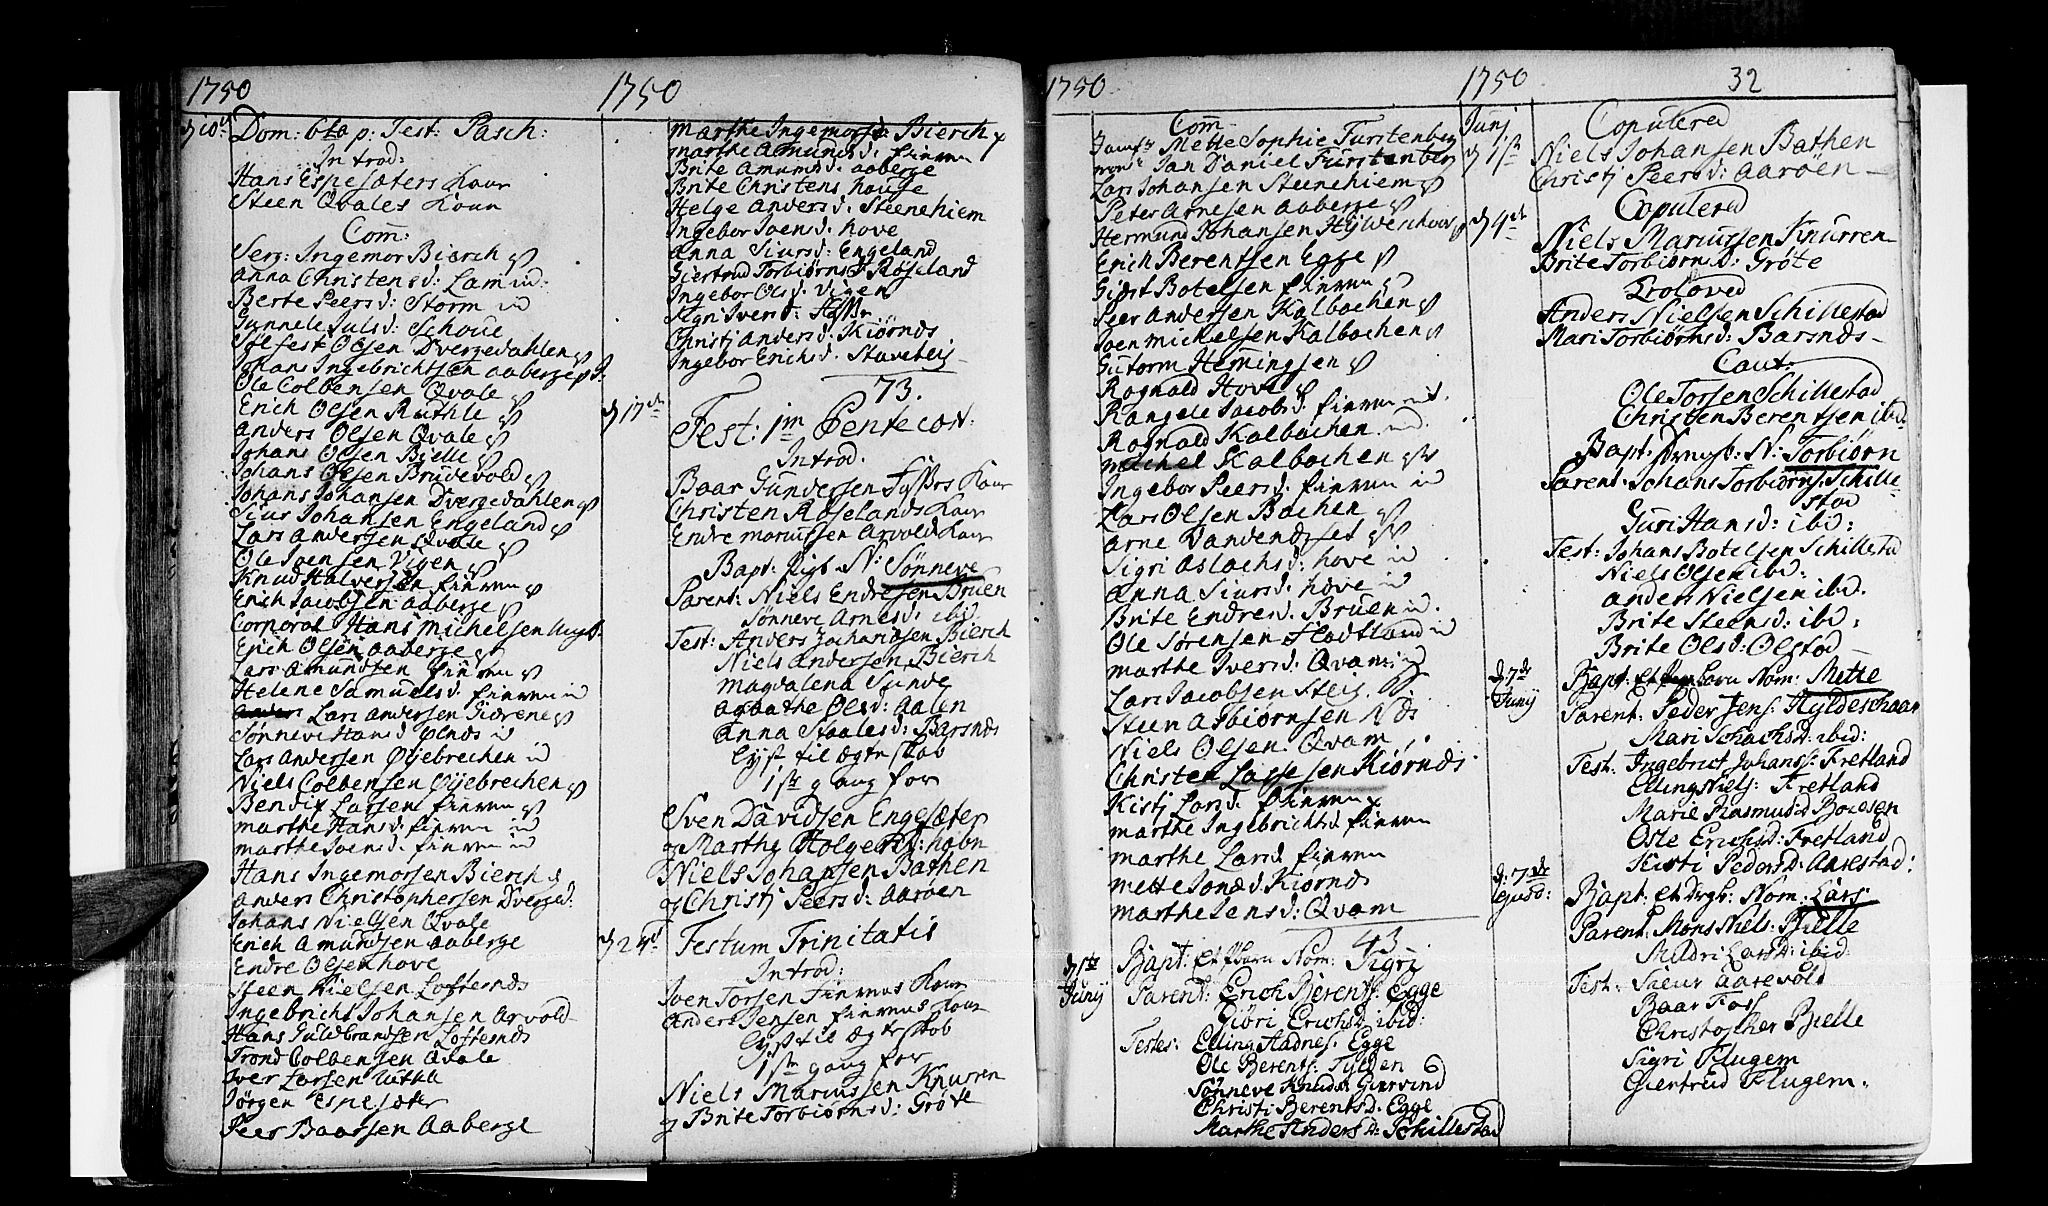 1750
1750
d 10de Dom: 6ta p: Fest: Pasch:
Introd:
Hans Espesæters Kone
Steen Qvales Kone
Com:
Serg: Ingemor Bierch
Anna Christensd: Lam ind:
Berte Peersd: Storm ind
Gunnele Julsd: Schoue
Sølfest Olsen Dvergedahlen
Johans Ingebrichtsen Aaberge
Ole Colbensen Qvale
Erich Olsen Ruthle
Anders Olsen Qvale
Johans Olsen Bielle
Johans Olsen Brudevold
Johans Johansen Dvergedahlen
Siur Johansen Engeland
Lars Andersen Qvale
Ole Joensen Vigen
Knud Halversen fierren
Erich Jacobsen Aaberge
Corporal Hans Michelsen
Erich Olsen Aaberge
Lars Amundsen fierren
Helene Samuelsd. fierren ind
Lars Andersen Gierene
Sønneve Hansd ind
Lars Andersen Øyebrechen ind
Niels Colbensen Øyebrechen
Bendix Larsen fierren
Marthe Hansd: fierren ind
Marthe Joensd: fierren ind
Hans Ingemorsen Bierch
Anders Christophersen Dverged:
Johans Nielsen Qvale
Erich Amundsen Aaberge
Endre Olsen hove
Steen Nielsen Loftesnds
Ingebricht Johansen Arvold
Hans Guldbrandsen Loftesnds
Trond Colbensen Qvale
Iver Larsen Ruthle
Jørgen Espesæter
Peer Baarsen Aaberge
Marthe Ingemorsd: Bierch
Marthe Amundsd: fierren
Brite Amundsd: Aaberge
Brite Christens houge
Helge Andersd: Steenehiem
Ingebor Joensd: hove
Anna Siursd: Engeland
Giertrud Torbiørnsd Røseland
Ingebor Olsd. Vigen
Sigri Iversd:
Christj Andersd: Kiørnds
Ingebor Erichsd. Staveteig
73.
d 17de Fest: 1m Pentecost:
Introd.
Baar Gundersen Kone
Christen Røselands Kone
Endre Mariussen Arvolds Kone
Bapt: N: Sønneve
Parent: Niels Endresen Bruen
Sønneve Arnesd: ibid
Test: Anders Zachariasen Bierch
Niels Andersen Bierch
Magdalena Stunde
Agathe Olsd: Aalen
Anna Staalesd: Barsnds
Lyst til ægteskab
1ste gang for
Sven Davidsen Engesæter
og Marthe Holgersd: nabn
Niels Johansen Bathen
og Christj Peersd: Aarøen
d 24de Festum Trinitatis
Introd:
Iven Torsen Fierrens Kone
Anders Jensen fierrens Kone
Lyst til ægteskab
1ste gang for
Niels Mariussen Knurren
og Brite Torbiørnsd: Grøte
1750
1750
32
Com
Mette Sophie Furstenberg
Jan Daniel Fürstenberg
Lars Johansen Steenehiem
Peter Arnesen Aaberge
Hermund Johansen
Erich Berentsen Egge
Giest Botelsen fierren
Peer Andersen Kalbachen
Joen Michelsen Kalbachen
Gutorm Hemingsen
Rognald Hove
Rangele Jacobsd: fierren ind.
Rognald Kalbachen ind.
Michel Kalbachen
Ingebor Peersd: fierren ind
Lars Olsen Bachen
Arne Dandendset
Sigri Aslachsd: hove ind
Anna Siursd: hove ind
Brite Endresd. Bruen ind.
Ole Sørensen Flatland ind
Marthe Iversd: Qvam ind
Lars Jacobsen Steig
Steen Asbiørnsen Nds
Niels Olsen Qvam
Christen Lassesen Kiørnds
Kistj Larsd: fierren
Marthe Ingebrichtsd: fierren
Marthe Larsd. fierren
Mette Jonæd. Kiørnds
Marthe Jensd: Qvam
43
d 1ste Junij Bapt: et Nom: Sigri
Parent: Erich Berents: Egge
Giøri Erichsd: ibid:
Testes: Elling Hadnes: Egge
Ole Berents: Fylden
Sønneve Knudsd Giersind
Christi Berentsd. Egge
Marthe Andersd: Schillestad
Junj d 1ste Copulered
Niels Johansen Bathen
Christj Peersd: Aarøen
d 4de Copulered
Niels Mariussen Knurren
Brite Torbiørnsd: Grøte
Troloved
Anders Nielsen Schillestad
Mari Torbiørnsd: Barsnds
Caut:
Ole Torsen Schillestad
Christen Berentsen ibid
Bapt: N: Torbiørn
Parent: Johans Torbiørns: Schillestad
Guri Hansd: ibid:
Test: Johans Botelsen Schillestad
Niels Olsen ibid:
Anders Nielsen ibid.
Brite Steensd: ibid:
Brite Olsd: Olstad
d. 7de Junij Bapt: Et Nom: Mette
Parent: Peder Jens: Hyldeschaar
Mari Schachsd: ibid:
Test: Ingebrict Johans: Fretland
Elling Niels: Fretland
Marie Rasmusd:
Osle Erichsd: Fretland
Kisti Pedersd: Aarestad:
d: 7de Bapt: et Nom: Lars
Parent: Mons Niels: Bielle
Mildri Larsd: ibid:
Test: Sieur Aarevold
Baar Foss
Christopher Bielle
Sigri Flugem
Giertrud Flugem.